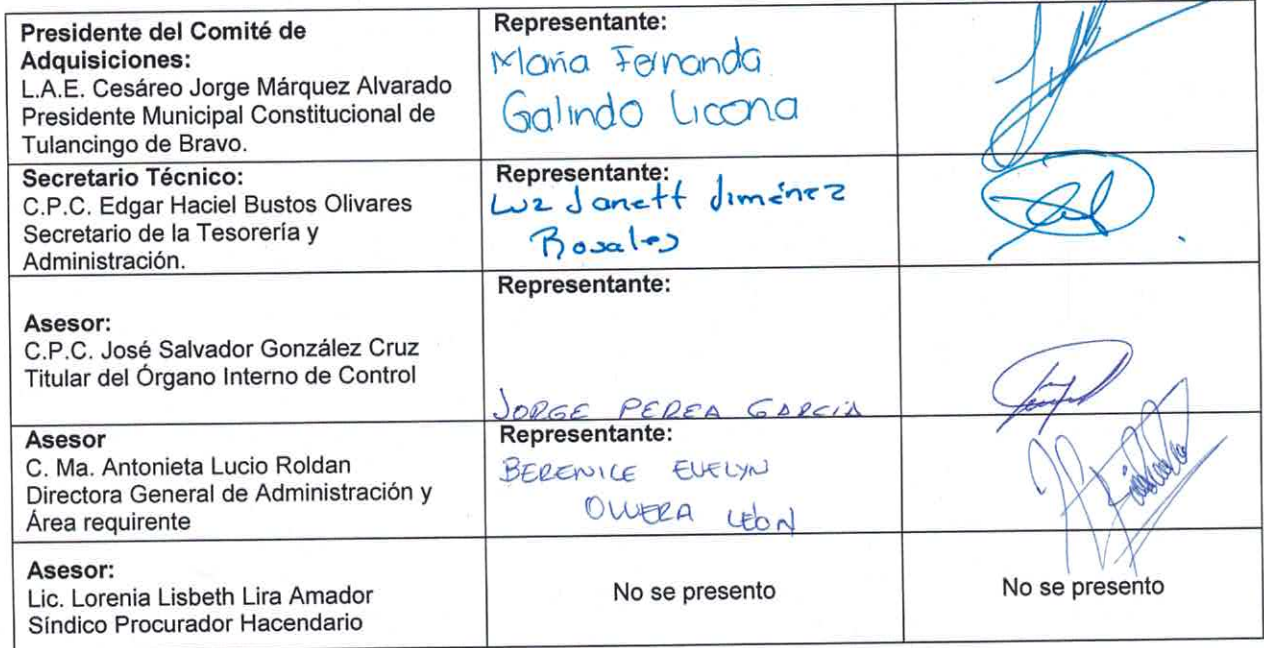 Presidente del Comité de
Adquisiciones:
L.A.E. Cesáreo Jorge Márquez Alvarado
Presidente Municipal Constitucional de
Tulancingo de Bravo.
Representante:
María Fernanda
Galindo Licona
Secretario Técnico:
C.P.C. Edgar Haciel Bustos Olivares
Secretario de la Tesorería y
Administración.
Representante:
Luz Janett Jiménez
Rosales
Asesor:
C.P.C. José Salvador González Cruz
Titular del Órgano Interno de Control
Representante:
JORGE PEREA GARCÍA
Asesor
C. Ma. Antonieta Lucio Roldan
Directora General de Administración y
Área requirente
Representante:
BERENICE EVELYN
OLVERA LEÓN
Asesor:
Lic. Lorenia Lisbeth Lira Amador
Síndico Procurador Hacendario
No se presento
No se presento